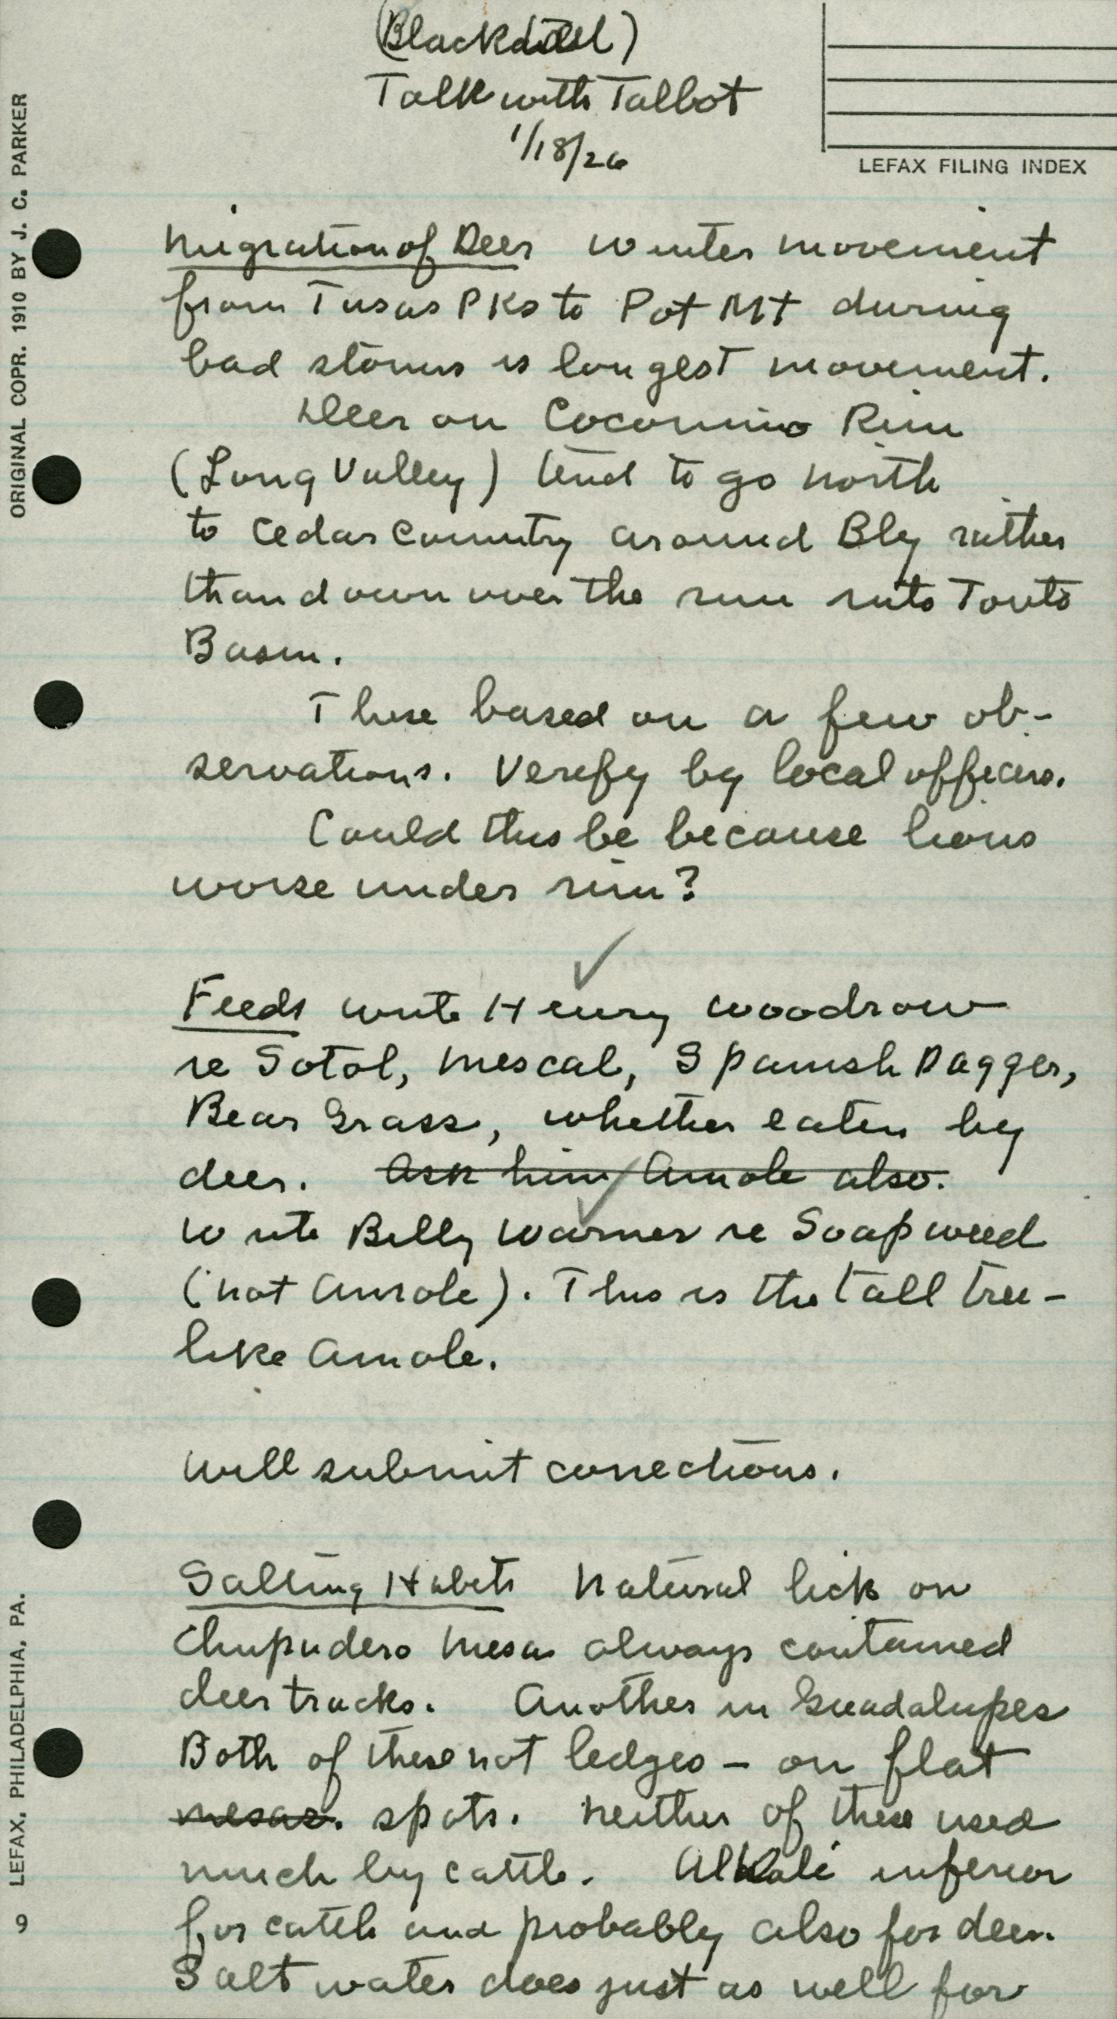 (Blacktail)
Talk with Talbot
1/18/26
LEFAX FILING INDEX
ORIGINAL COPR. 1910 BY J. C. PARKER
Migration of Deer Winter movement
from Tusas Pks to Pot Mt during
bad storms is longest movement.
Deer on Coconino Rim
(Long Valley) tend to go north
to cedar country around Bly rather
than down over the rim into Tonto
Basin.
These based on a few ob-
servations. Verefy by local officers.
Could this be because lions
worse under rim?
✓
Feeds write Henry Woodrow
re Sotol, Mescal, Spanish Dagger,
Bear Grass, whether eaten by
deer. Ask him Amole also.
✓
Write Billy Warner re Soapweed
(not Amole). This is the tall tree-
like Amole.
Will submit corrections.
Salting Habits Natural lick on
Chupudero Mesa always contained
deer tracks. Another in Guadalupes
Both of these not ledges – on flat
mesas. spots. Neither of these used
much by cattle. Alkali inferior
for cattle and probably also for deer.
Salt water does just as well for
LEFAX, PHILADELPHIA, PA.
9